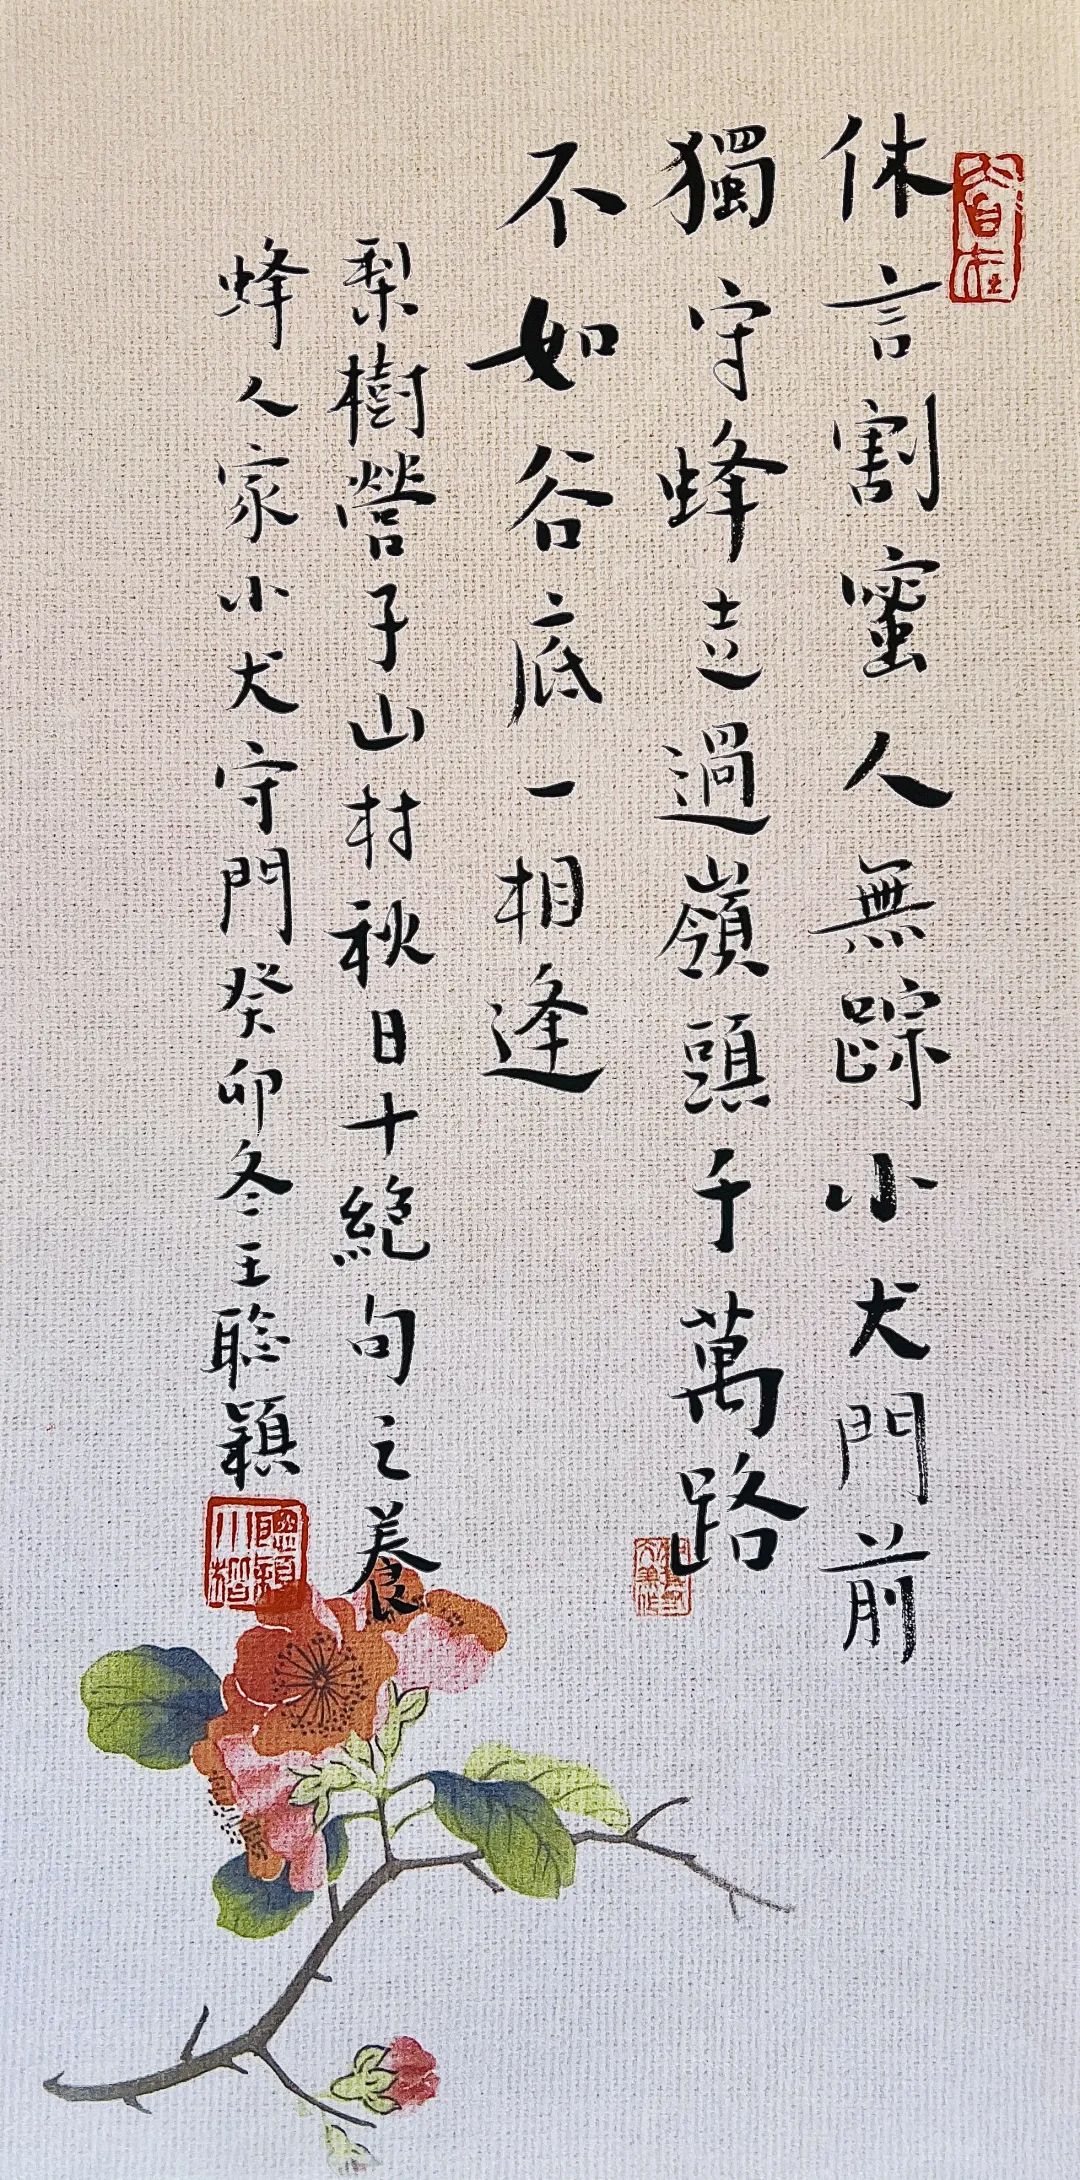 休言割蜜人無踪小犬門前
獨守蜂走過嶺頭千萬路
不如谷底一相逢
梨樹營子山村秋日十絕句之養
蜂人家小犬守門癸卯冬王聡穎